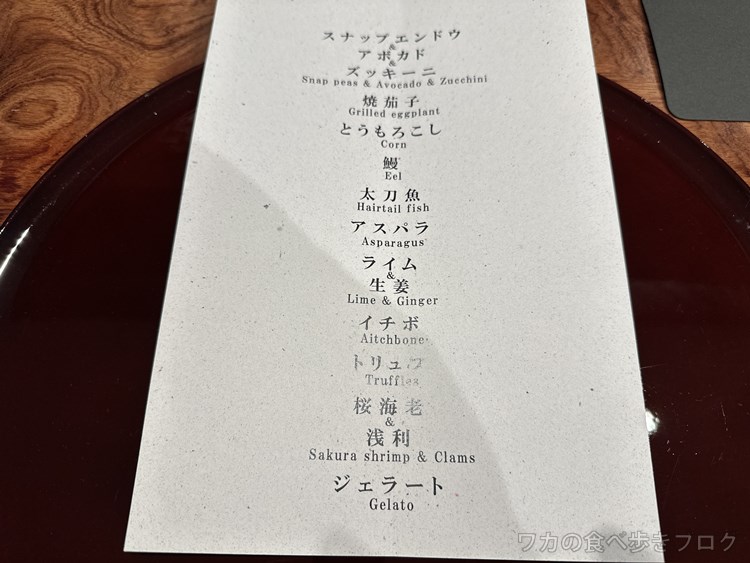 スナップエンドウ
&
アボカド
&
ズッキーニ
Snap peas & Avocado & Zucchini
焼茄子
Grilled eggplant
とうもろこし
Corn
鰻
Eel
太刀魚
Hairtail fish
アスパラ
Asparagus
ライム
&
生姜
Lime & Ginger
イチボ
Aitchbone
トリュフ
Truffles
桜海老
&
浅利
Sakura shrimp & Clams
ジェラート
Gelato
ワカの食べ歩きブログ